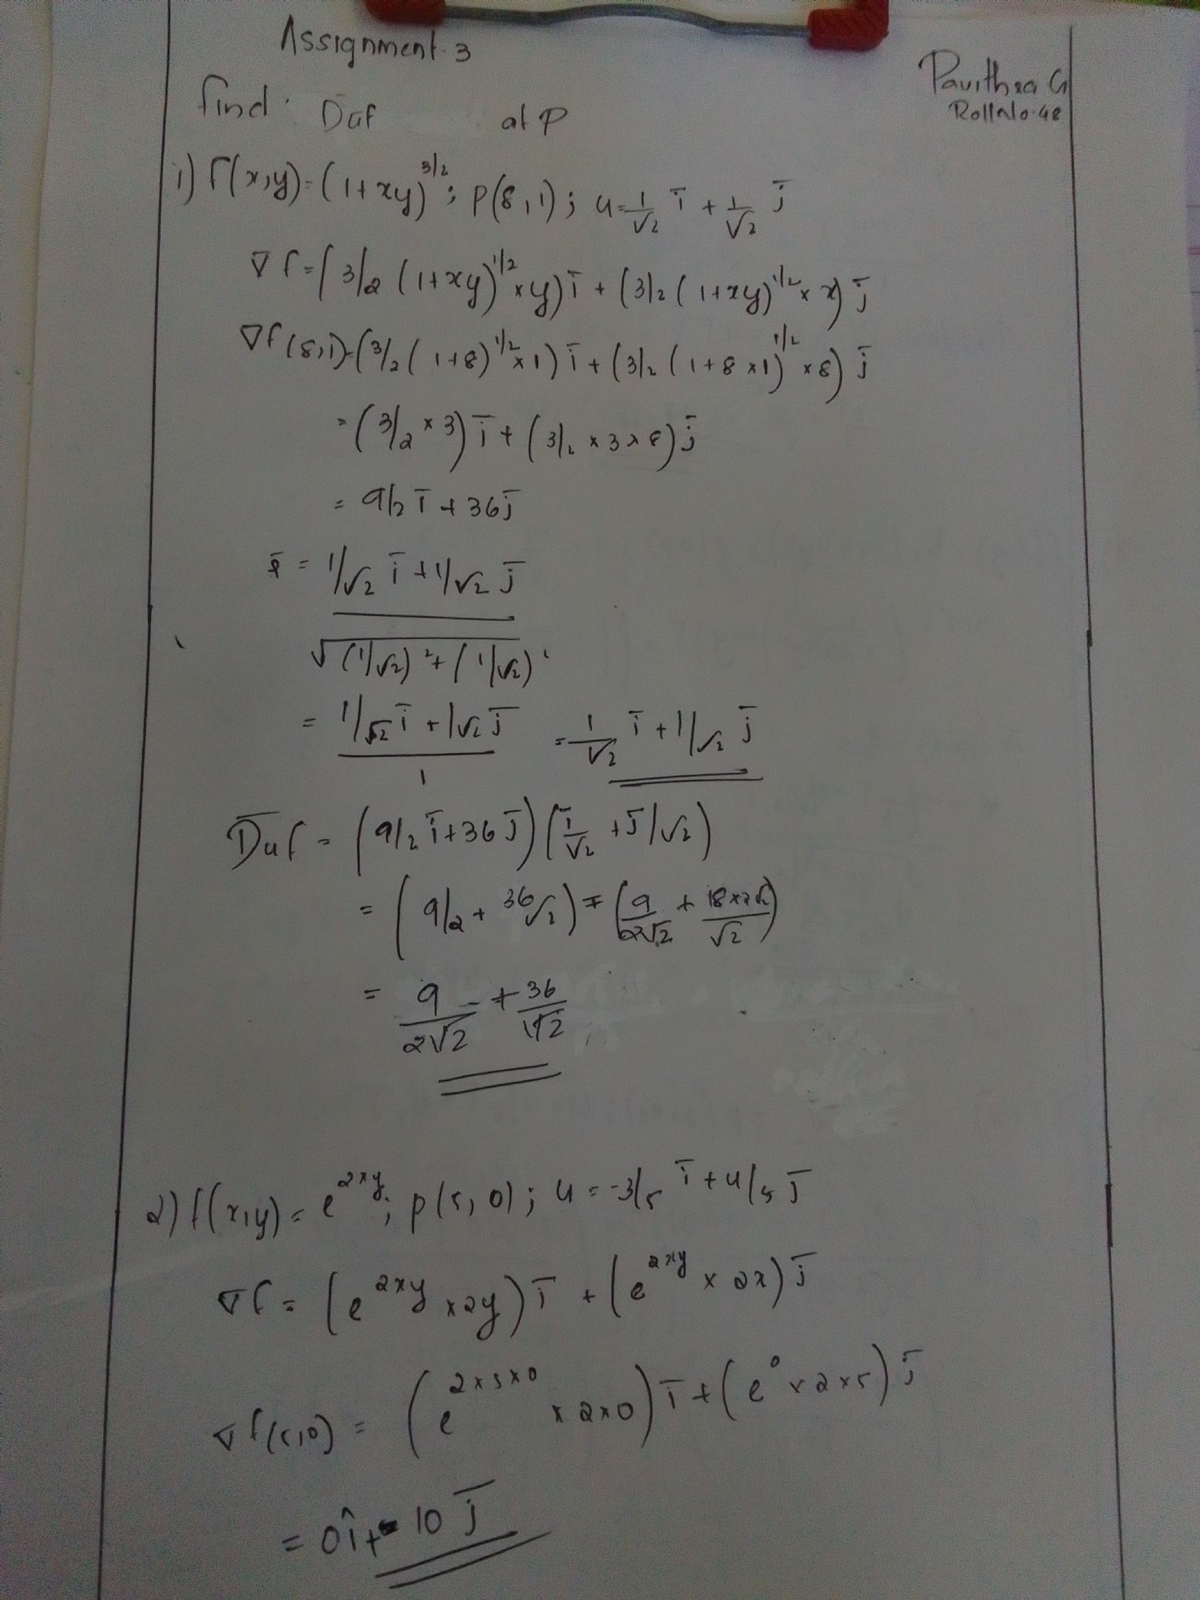 Assignment. 3
Pavithra G
Roll No. 48
find : Duf at P
1) f(x,y) = (1+xy)^3/2 ; P(8,1) ; u = 1/√2 i̅ + 1/√2 j̅
∇f = (3/2 (1+xy)^1/2 × y) i̅ + (3/2 (1+xy)^1/2 × x) j̅
∇f(8,1) = (3/2 (1+8)^1/2 × 1) i̅ + (3/2 (1+8×1)^1/2 × 8) j̅
= (3/2 × 3) i̅ + (3/2 × 3 × 8) j̅
= 9/2 i̅ + 36 j̅
= 1/√2 i̅ + 1/√2 j̅
√(1/√2)² + (1/√2)²
= 1/√2 i̅ + 1√2 j̅ / 1 = 1/√2 i̅ + 1/√2 j̅
D̅uf = (9/2 i̅ + 36 j̅) (i̅/√2 + j̅/√2)
= (9/2 + 36/√2) = (9/2√2 + 18×2/√2)
= 9/2√2 + 36/√2
2) f(x,y) = e^2xy ; P(5,0) ; u = -3/5 i̅ + 4/5 j̅
∇f = (e^2xy × 2y) i̅ + (e^2xy × 2x) j̅
∇f(5,0) = (e^2×5×0 × 2×0) i̅ + (e^0 × 2×5) j̅
= 0î + 10 j̅